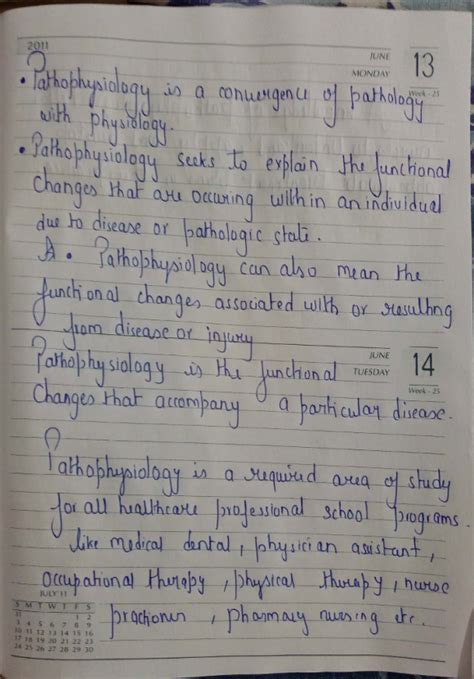 2011
JUNE
MONDAY 13
Week - 25
• Pathophysiology is a convergence of pathology
with physiology.
• Pathophysiology seeks to explain the functional
Changes that are occuring within an individual
due to disease or pathologic state.
• Pathophysiology can also mean the
functional changes associated with or resulting
from disease or injury
JUNE
TUESDAY 14
Week - 25
Pathophysiology is the functional
Changes that accompany a particular disease.
Pathophysiology is a required area of study
for all healthcare professional school programs.
like medical dental, physician assistant,
occupational therapy, physical therapy, nurse
practioner, pharmacy nursing etc.
JULY 11
S M T W T F S
31 1 2
3 4 5 6 7 8 9
10 11 12 13 14 15 16
17 18 19 20 21 22 23
24 25 26 27 28 29 30